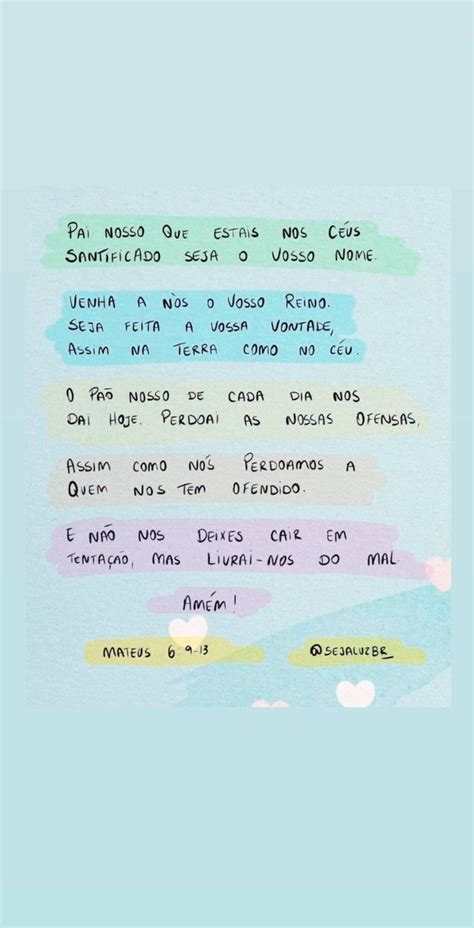 PAI NOSSO QUE ESTAIS NOS CÉUS
SANTIFICADO SEJA O VOSSO NOME.
VENHA A NÓS O VOSSO REINO.
SEJA FEITA A VOSSA VONTADE,
ASSIM NA TERRA COMO NO CÉU.
O PÃO NOSSO DE CADA DIA NOS
DAI HOJE. PERDOAI AS NOSSAS OFENSAS,
ASSIM COMO NÓS PERDOAMOS A
QUEM NOS TEM OFENDIDO.
E NÃO NOS DEIXES CAIR EM
TENTAÇÃO, MAS LIVRAI-NOS DO MAL
AMÉM!
MATEUS 6:9-13 @SEJALUZBR_